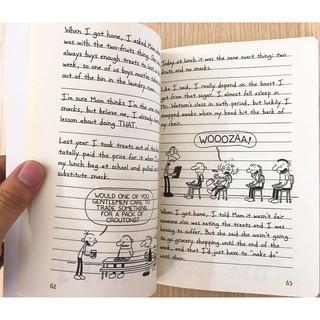 When I got home, I asked Mom
was with the two-fruits thing. She
always buys enough treats to
week, so one of us boys mustta
out of the bin in the laundry room.
I'm sure Mom thinks I'm the one
snacks, but believe me, I already
lesson about doing THAT.
Last year I took treats out of the
totally paid the price for it when I
my lunch bag at school and pulled
substitute snack.
WOULD ONE OF YOU
GENTLEMEN CARE TO
TRADE SOMETHING
FOR A PACK OF
CROUTONS?
62
Today at lunch it was the same exact thing: two
fruits and no snacks.
Like I said, I really depend on the boost I
get from that sugar. I almost fell asleep in
Mr. Watson's class in sixth period, but luckily I
snapped awake when my head hit the back of
my chair.
WOOOZAA!
When I got home, I told Mom it wasn't fair
someone else was eating the treats and I was
having to suffer. But she said she wasn't going
to go grocery shopping until the end of the
week, and that I'd just have to "make do"
until then.
63